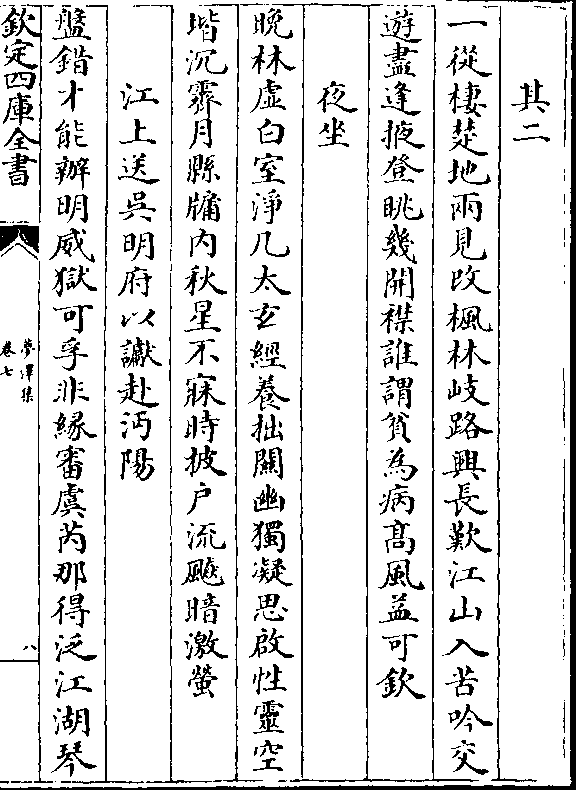 其二
一從棲楚地兩見改楓林岐路興長歎江山入苦吟交
遊盡逢掖登眺幾開襟誰謂貧為病髙風益可欽
夜坐
晩林虚白室淨几太𤣥經養拙關幽獨凝思啟性靈空
堦沉霽月縣牖内秋星不寐時披户流飈暗激螢
江上送吳明府以讞赴沔陽
盤錯才能辦明威獄可孚非緣畨虞芮那得泛江湖琴
欽定四庫全書
夢澤集
卷七
八